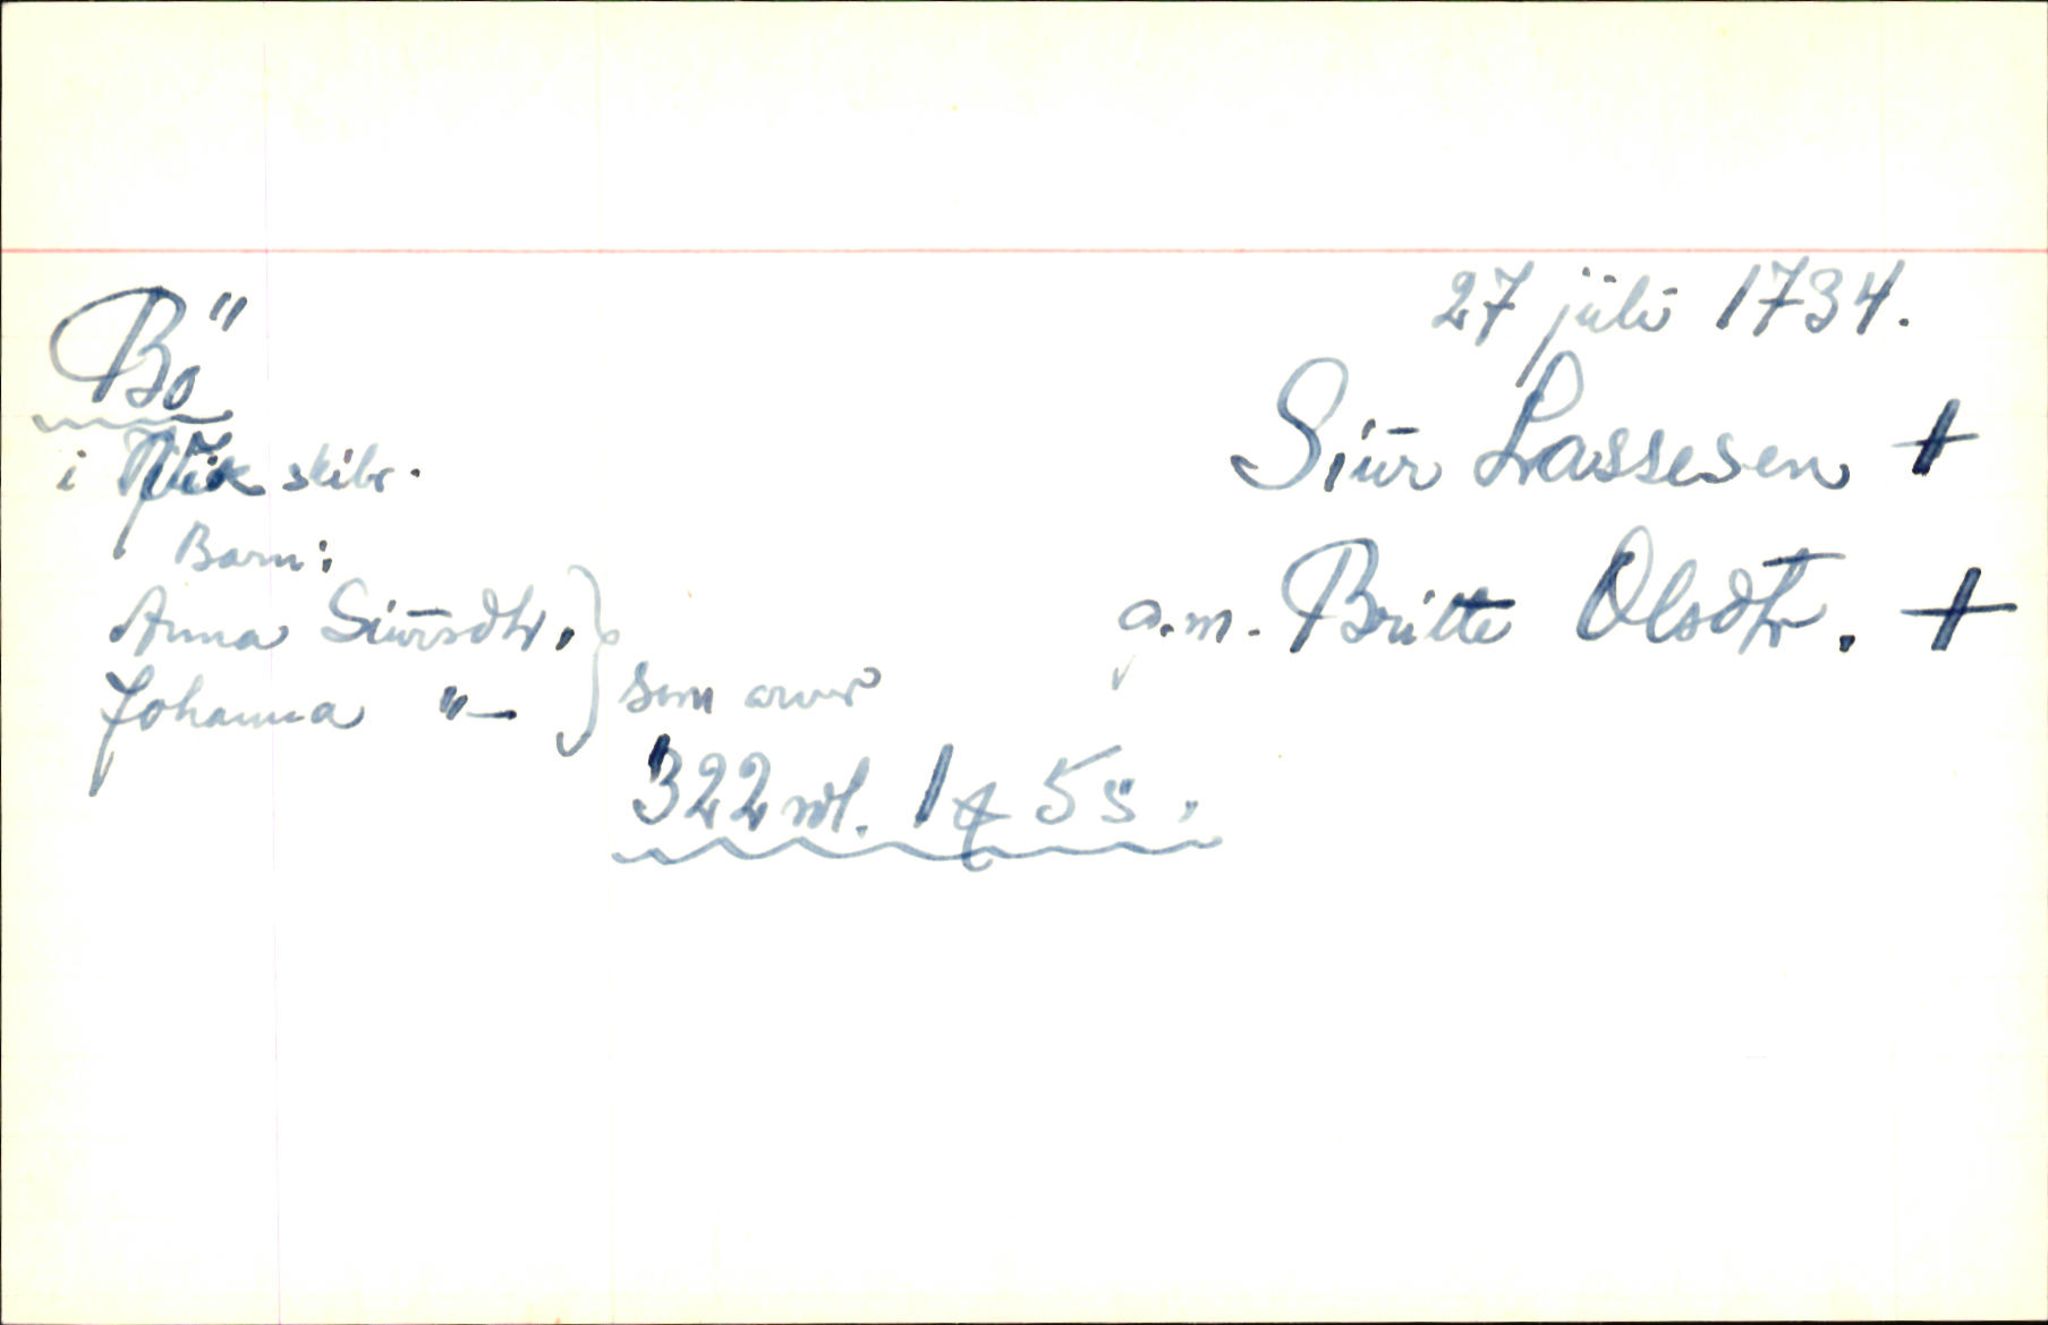 27 juli 1734.
Bö
Siur Lassesen +
i Vik skibr.
Barn:
g.m. Britte Olsdtr. +
Anna Siursdtr.
Johanna "— } som arver
322 rdl. 1 ꝗ 5 s.